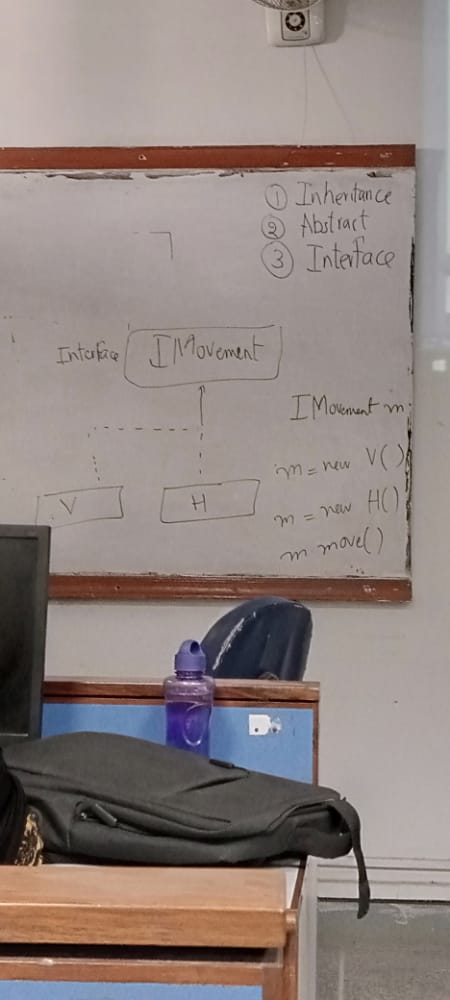 ① Inheritance
② Abstract
③ Interface
Interface IMovement
IMovement m;
m = new V()
V H
m = new H()
m.move()